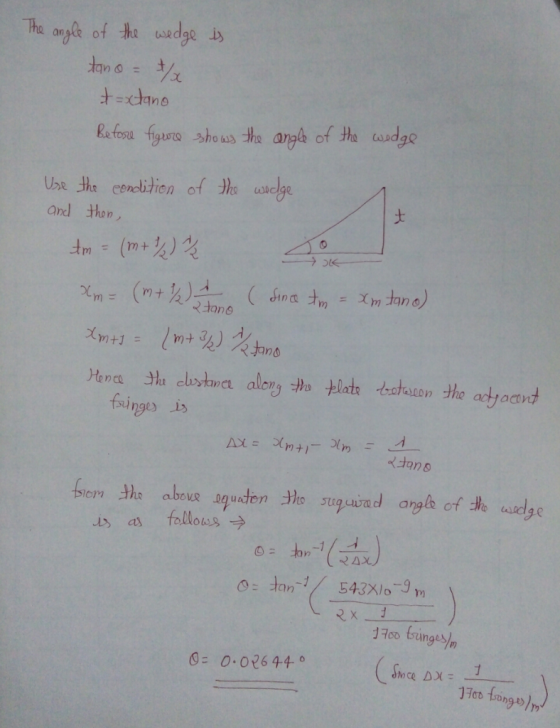 The angle of the wedge is
tanθ = t/x
t = x tanθ
Before figure shows the angle of the wedge
Use the condition of the wedge
and then,
t
θ
x
tm = (m + 1/2) λ/2
xm = (m + 1/2) λ/2tanθ ( Since tm = xm tanθ)
xm+1 = (m + 3/2) λ/2tanθ
Hence the distance along the plate between the adjacent
fringes is
Δx = xm+1 - xm = λ/2tanθ
from the above equation the required angle of the wedge
is as follows ⇒
θ = tan⁻¹ (λ/2Δx)
θ = tan⁻¹ ( 543×10⁻⁹ m / 2 × 1/1700 fringes/m )
θ = 0.02644° ( Since Δx = 1/1700 fringes/m )